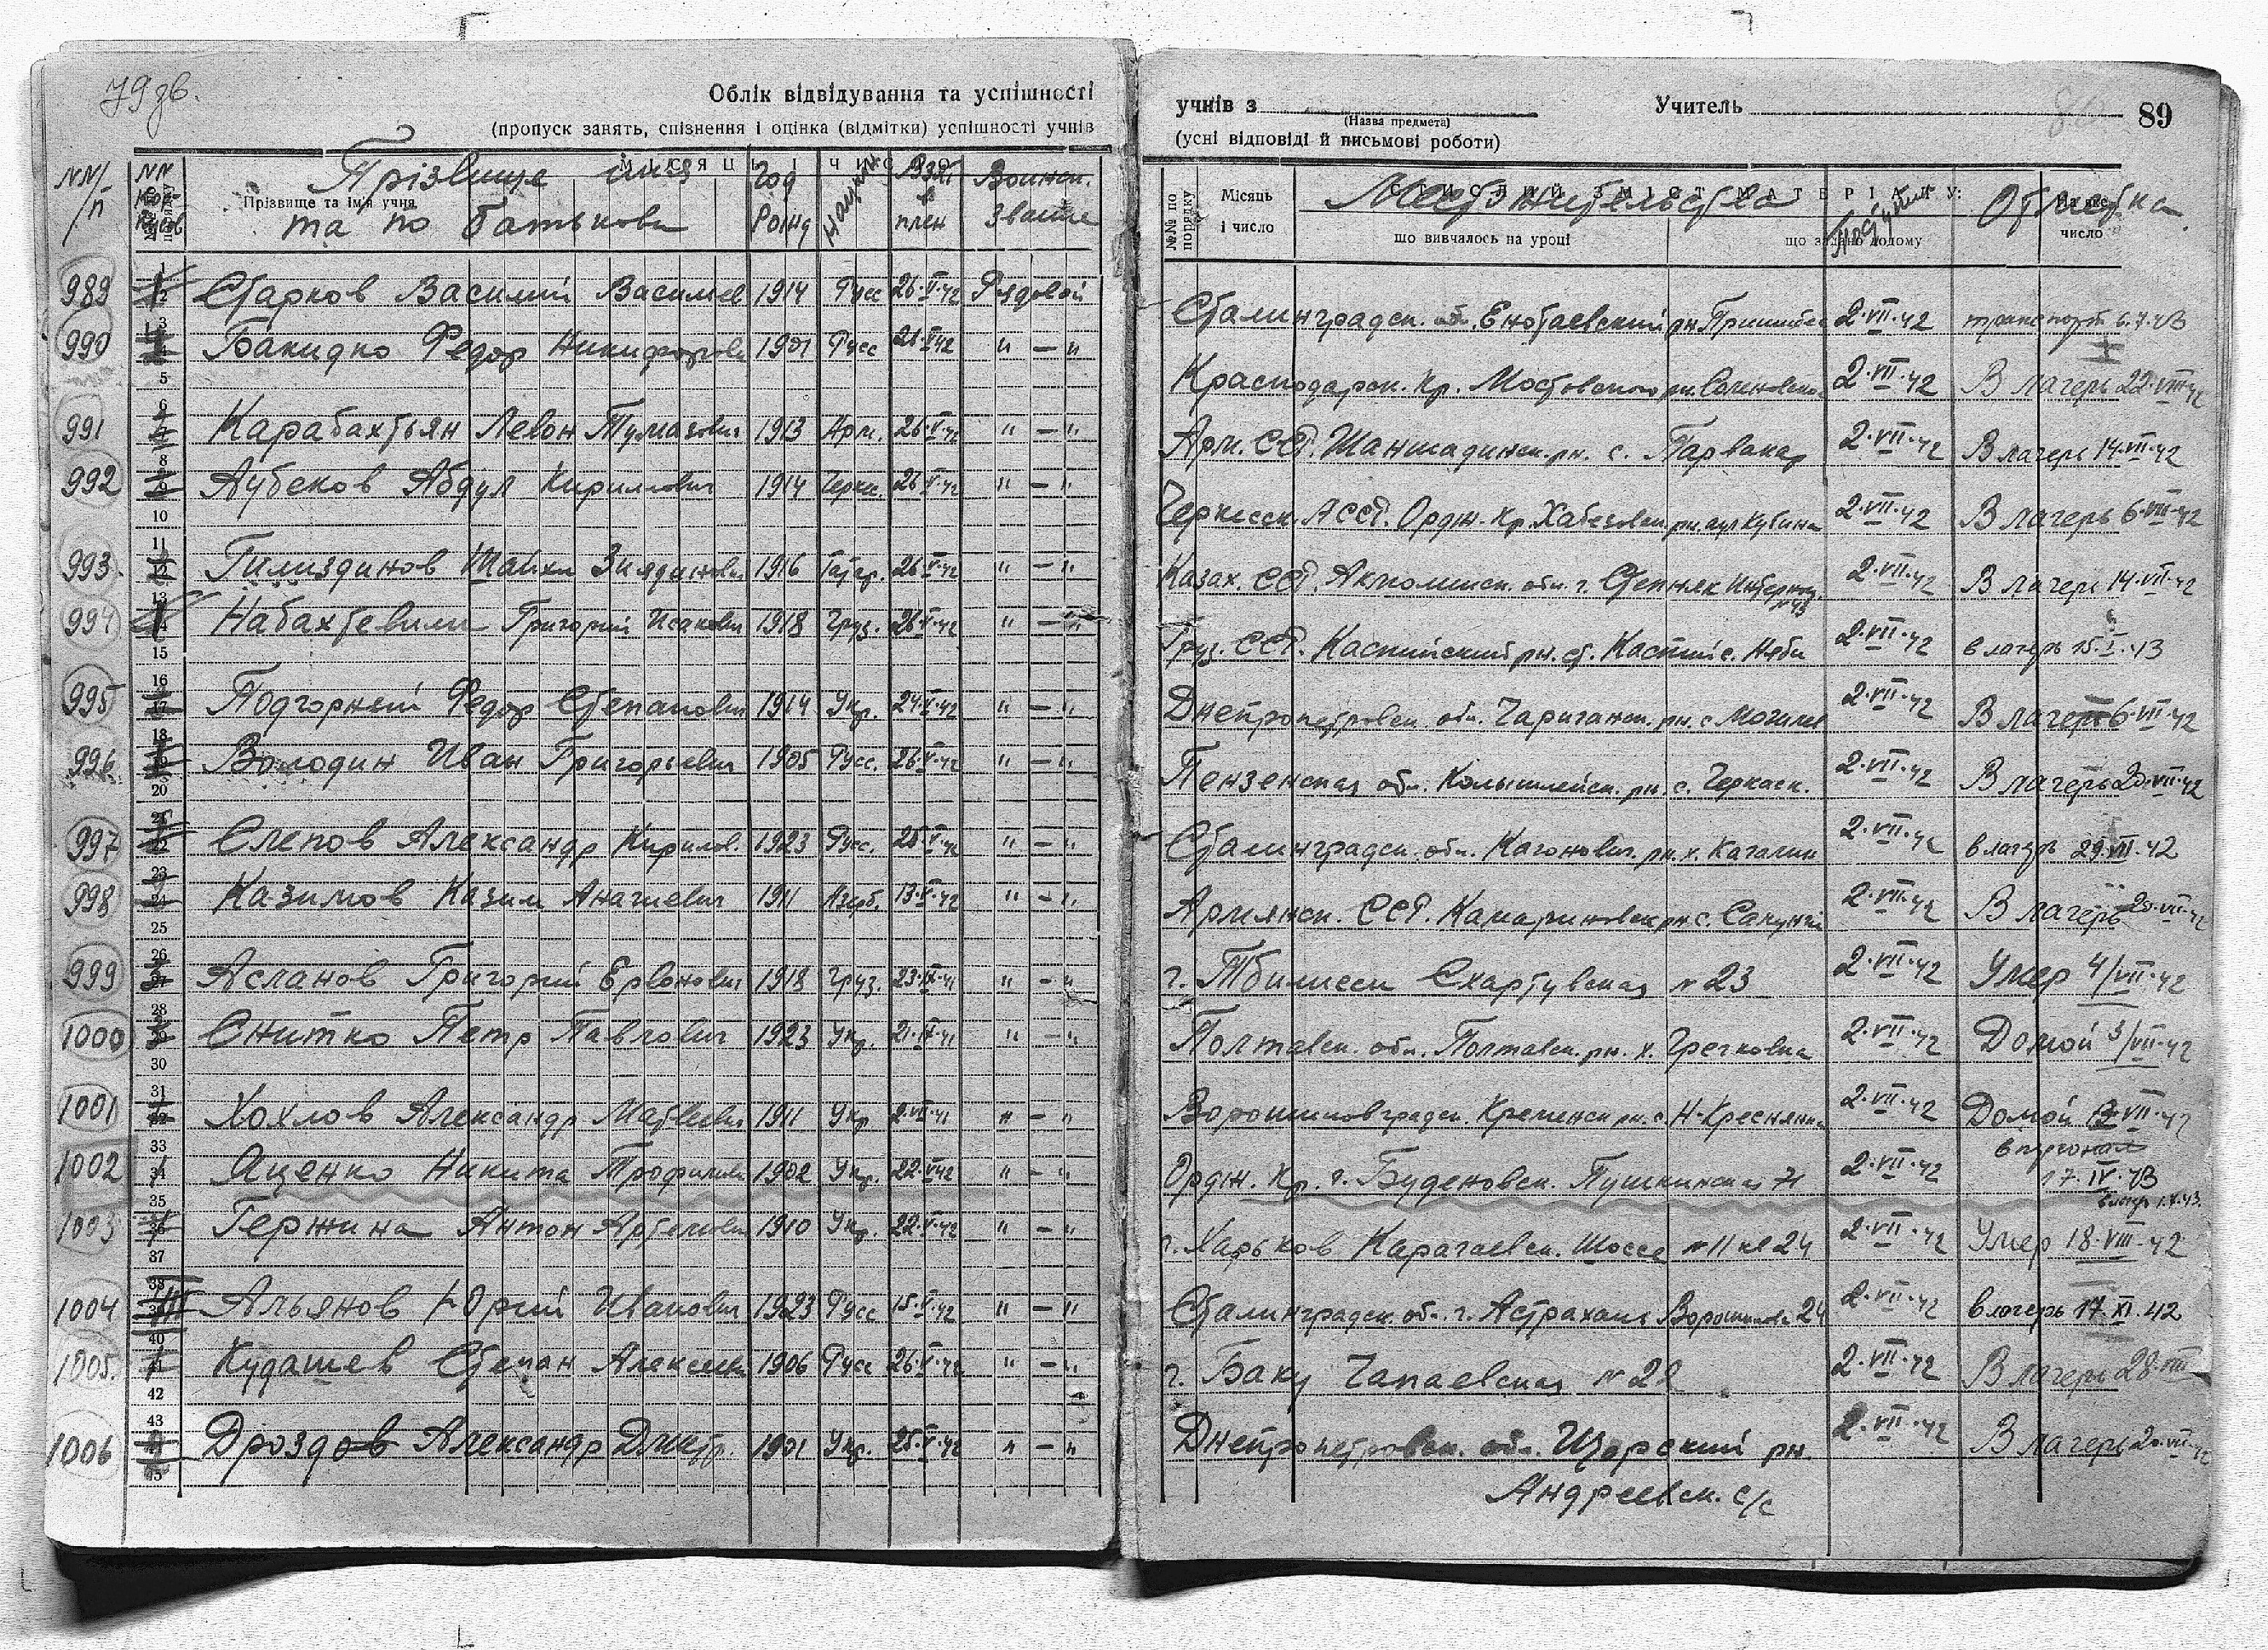 79 зв.
Облік відвідування та успішності
(пропуск занять, спізнення і оцінка (відмітки) успішності учнів
NN п/п
NN
Прізвище имя
та по батькови
Прізвище та ім'я учня
Год Рожд
Взят в плен
Воинск. Звание
989 Старков Василий Васильев 1914 Русс 26·V·42 Рядовой
990 Бакидко Федор Никифоров 1901 Русс 26·V·42 " — "
991 Карабахтьян Левон Тумасович 1913 Арм. 26·V·42 " — "
992 Аубеков Абдул Кириллович 1914 Черкес. 26·V·42 " — "
993 Гилиздинов Шайхи Зиядинович 1916 Татар. 26·V·42 " — "
994 Набахтевили Григорий Исакович 1918 Груз. 26·V·42 " — "
995 Подгорный Федор Степанович 1914 Укр. 24·V·42 " — "
996 Володин Иван Григорьевич 1905 Русс. 26·V·42 " — "
997 Слепов Александр Кирилов. 1923 Русс. 25·V·42 " — "
998 Казимов Казим 1911 Азерб. 13·V·42 " — "
999 Асланов Григорий Ервонович 1918 Груз. 23·IX·41 " — "
1000 Снитко Петр Павлович 1923 Укр. 21·IX·41 " — "
1001 Хохлов Александр Матвеевич 1911 Укр 2·VII·41 " — "
1002 Яценко Никита Трофимович 1902 Укр. 22·V·42 " — "
1003 Гержина Антон Артемович 1910 Укр. 22·V·42 " — "
1004 Альянов Юрий Иванович 1923 Русс 15·V·42 " — "
1005. Кудашев Степан Алексеев 1906 Русс 26·V·42 " — "
1006 Дроздов Александр Дмитр. 1901 Укр. 25·V·42 " — "
учнів з
(Назва предмета)
Учитель
89
(усні відповіді й письмові роботи)
№№ по порядку
Місяць і число
СТИСЛИЙ ЗМІСТ МАТЕРІАЛУ:
Место жительства
Отметка
що вивчалось на уроці
що задано додому
число
Сталинградск. об. Енотаевский рн 2·VII·42 транспорт 6.7.43
Краснодарск. Кр. Мостовского рн. 2·VII·42 В лагерь 22·VIII·42
Арм. ССР. Шаншадинск. рн. с. Парвакар 2·VII·42 В лагерь 14·VII·42
Черкесск. АССР. Ордж. Кр. Хабезовск. рн. аул Кубина 2·VII·42 В лагерь 6·VIII·42
Казах. ССР. Акмолинск. обл. г. Степняк 2·VII·42 В лагерь 14·VII·42
Груз. ССР. Каспийский рн. ст. Каспий с. 2·VII·42 в лагерь 15·I·43
Днепропетровск. обл. Чаричанск. рн. с Могилев 2·VII·42 В лагерь 6·VIII·42
Пензенская обл. Колышлейск. рн. с. Черкаск. 2·VII·42 В лагерь 20·VII·42
Сталинградск. обл. Каганович. рн. х. Качалин 2·VII·42 в лагерь 29·VII·42
Армянск. ССР. рн с. 2·VII·42 В лагерь 20·VII·42
г. Тбилисси № 23 2·VII·42 Умер 4/VII·42
Полтавск. обл. Полтавск. рн. х. Гречковка 2·VII·42 Домой 3/VII·42
Ворошиловградск. Кременск рн. с Н-Креснянка 2·VII·42 Домой VII·42
Ордж. Кр. г. Буденовск. Пушкинская 71 2·VII·42 17·IV·43
в лагерь 1.V.43.
г. Харьков Карачаевск. Шоссе № 11 кв 24 2·VII·42 Умер 18·VIII·42
Сталинградск. об. г. Астрахань Ворошилова 24 2·VII·42 в лагерь 17·XI·42
г. Баку Чапаевская № 22 2·VII·42 В лагерь 28·VIII
Днепропетровск. обл. Щорский рн. 2·VII·42 В лагерь 20·VII·42
Андреевск. с/с